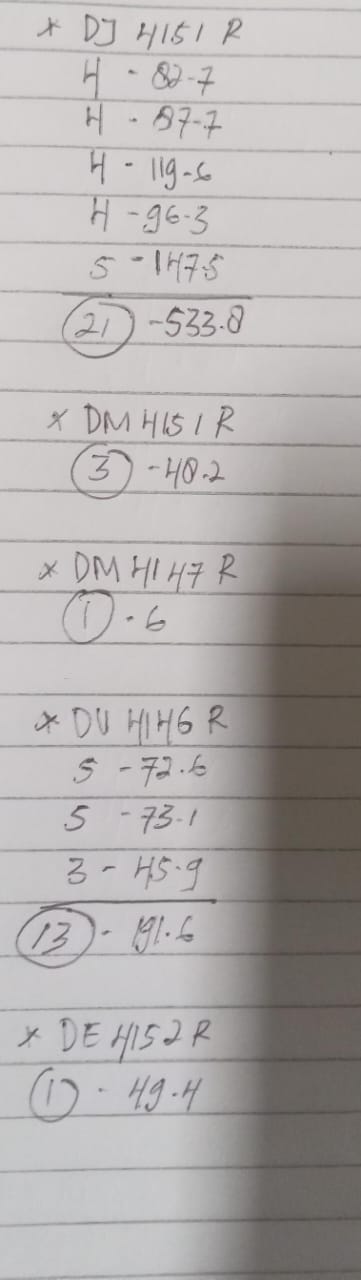 * DJ 4151 R
4 - 82-7
4 - 87-7
4 - 119-6
4 - 96.3
5 - 147.5
21 - 533.8
* DM 4151 R
3 - 48.2
* DM 4147 R
1 - 6
* DU 4146 R
5 - 72.6
5 - 73.1
3 - 45.9
13 - 191.6
* DE 4152 R
1 - 49.4